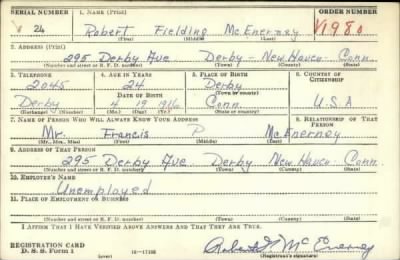 SERIAL NUMBER 1. NAME (Print) ORDER NUMBER
24 Robert Fielding McEnerney V1980
(First) (Middle) (Last)
2. ADDRESS (Print)
295 Derby Ave Derby - New Haven Conn.
(Number and street or R. F. D. number) (Town) (County) (State)
3. TELEPHONE 4. AGE IN YEARS 5. PLACE OF BIRTH 6. COUNTRY OF CITIZENSHIP
2045 24 Derby
(Town or county)
Derby DATE OF BIRTH
4 19 1916 Conn. U.S.A
(Exchange) (Number) (Mo.) (Day) (Yr.) (State or country)
7. NAME OF PERSON WHO WILL ALWAYS KNOW YOUR ADDRESS 8. RELATIONSHIP OF THAT PERSON
Mr. Francis P McEnerney
(Mr., Mrs., Miss) (First) (Middle) (Last)
9. ADDRESS OF THAT PERSON
295 Derby Ave Derby New Haven Conn
(Number and street or R. F. D. number) (Town) (County) (State)
10. EMPLOYER'S NAME
Unemployed
11. PLACE OF EMPLOYMENT OR BUSINESS
(Number and street or R. F. D. number) (Town) (County) (State)
I AFFIRM THAT I HAVE VERIFIED ABOVE ANSWERS AND THAT THEY ARE TRUE.
REGISTRATION CARD
D. S. S. Form 1 (over) 16-17105 Robert F McEnerney
(Registrant's signature)